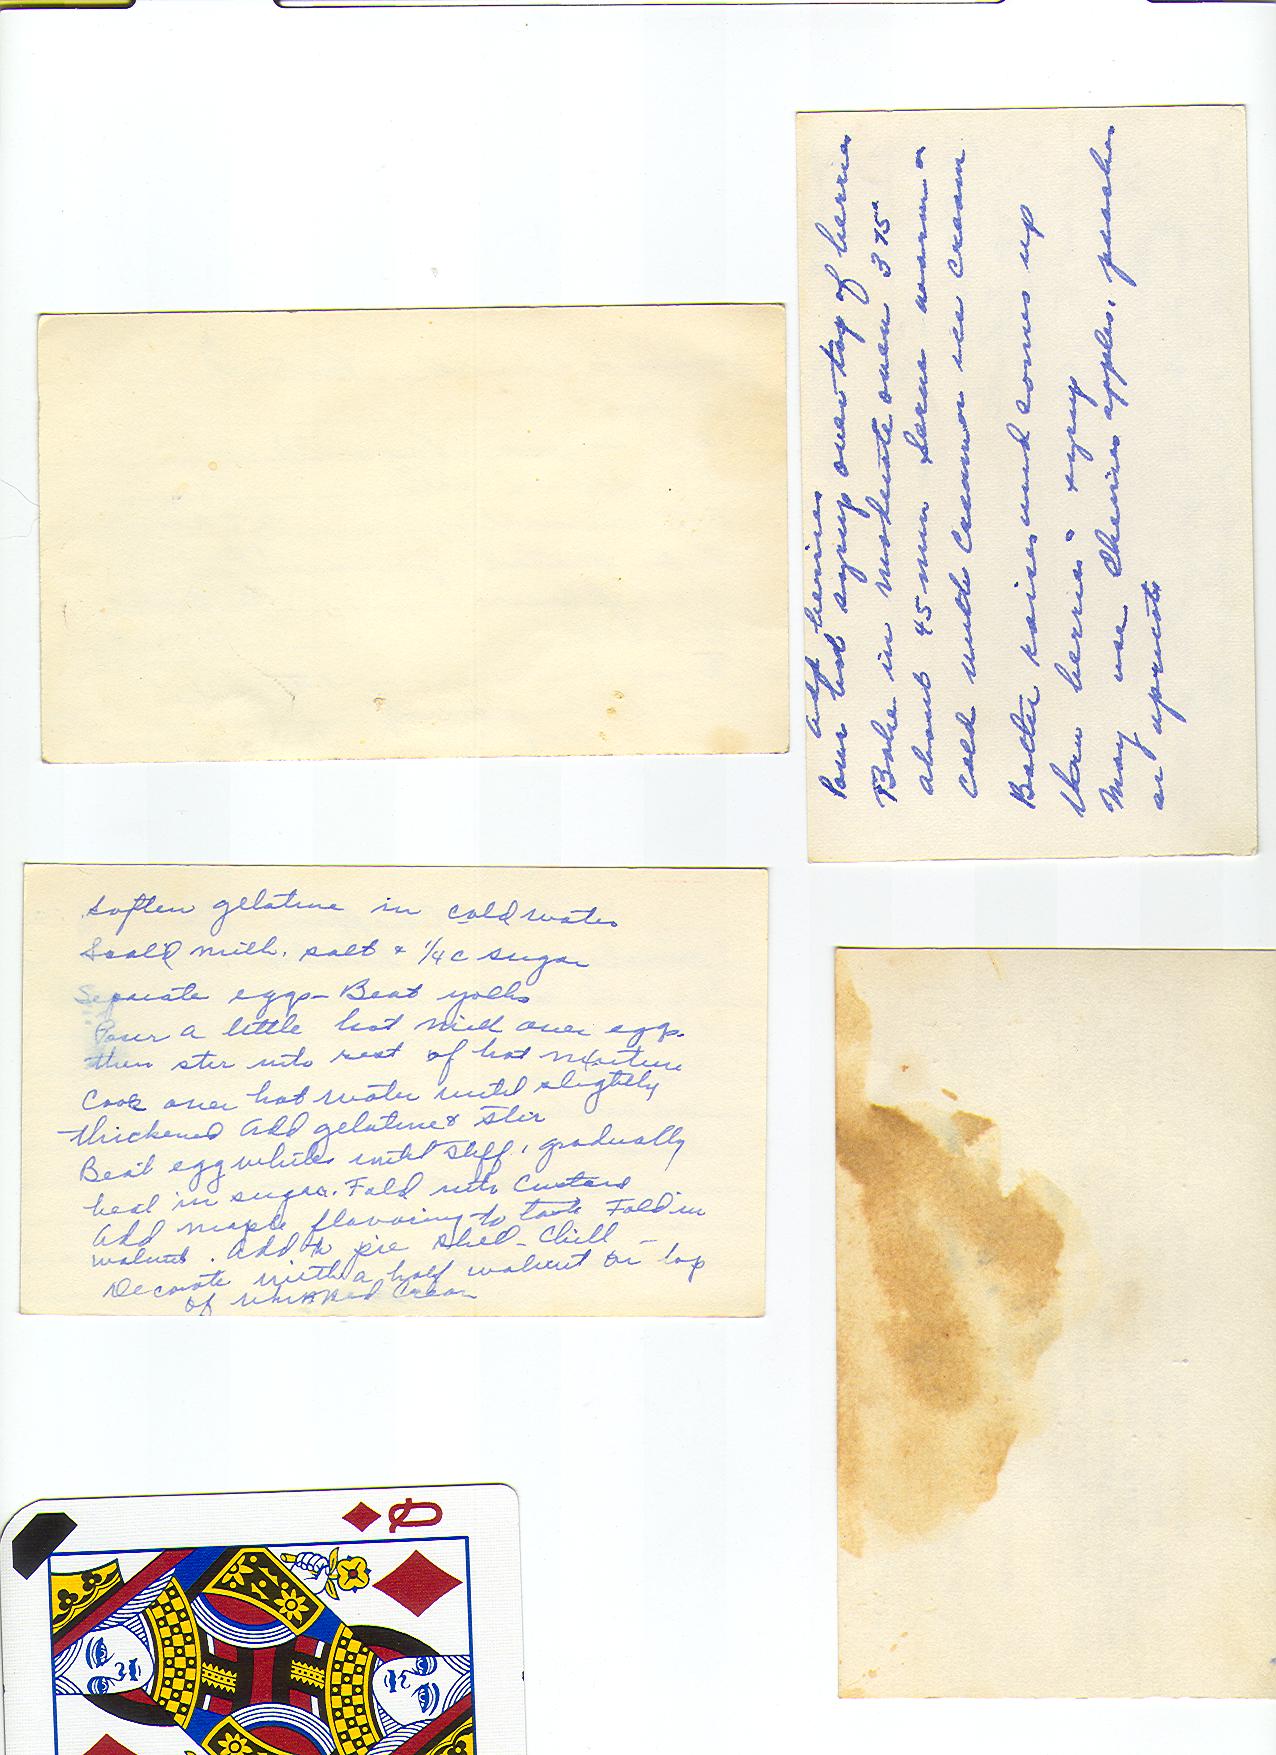 add berries
Pour hot syrup over top of berries
Bake in moderate oven 375°
about 45 min Serve warm or
cold with cream or ice cream
Batter raises and comes up
thru berries & syrup
May use cherries apples, peaches
or apricots
Soften gelatine in cold water
Scald milk, salt & 1/4 c sugar
Separate eggs - Beat yolks
Pour a little hot milk over egg.
then stir into rest of hot mixture
Cook over hot water until slightly
thickened Add gelatine & stir
Beat egg whites until stiff, gradually
beat in sugar. Fold into custard
Add maple flavoring to taste Fold in
walnuts. Add to pie shell - Chill -
Decorate with a half walnut on top
of whipped cream
Q